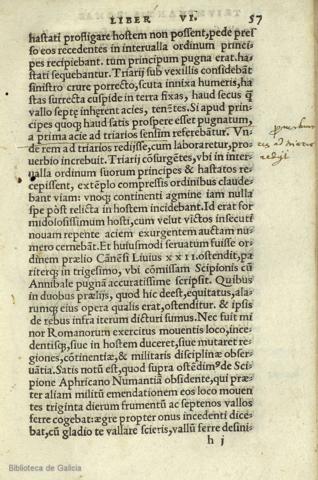 LIBER VI. 57
hastati profligare hostem non possent, pede pres⸗
so eos recedentes in interualla ordinum princi⸗
pes recipiebant. tum principum pugna erat. ha⸗
stati sequebantur. Triarij sub vexillis considebāt
sinistro crure porrecto, scuta innixa humeris, ha
stas surrecta cuspide in terra fixas, haud secus q̄
vallo septę inhęrent acies, tenētes. Si apud prin⸗
cipes quoq; haud satis prospere esset pugnatum,
a prima acie ad triarios sensim referebātur. Vn⸗
de rem ad triarios redijsse, cum laboraretur, pro⸗
uerbio increbuit. Triarij cōsurgētes, vbi in inter
ualla ordinum suorum principes & hastatos re
cepissent, extēplo compressis ordinibus claude⸗
bant viam: vnoq; continenti agmine iam nulla
spe pōst relicta in hostem incidebant. Id erat for
midolosissimum hosti, cum velut victos insecuti
nouam repente aciem exurgentem auctam nu⸗
mero cernebāt. Et huiusmodi seruatum fuisse or
dinem prælio Cānēsi Liuius XXII. ostendit, pa
riterq; in trigesimo, vbi cōmissam Scipionis cū
Annibale pugnā accuratissime scripsit. Quibus
in duobus prælijs, quod hic deest, equitatus, ala⸗
rumq; eius opera qualis erat, ostenditur. & ipsis
de rebus infra iterum dicturi sumus. Nec fuit mi
nor Romanorum exercitus mouentis loco, ince⸗
dentisq;, siue in hostem duceret, siue mutaret re⸗
giones, cōtinentiæ, & militaris disciplinæ obser⸗
uātia. Satis notū est, quod supra ostēdimꝰ de Sci⸗
pione Aphricano Numantiā obsidente, qui præ⸗
ter aliam militū emendationem eos loco mouen
tes triginta dierum frumentū ac septenos vallos
ferre cogebat: ægre propter onus incedenti dice⸗
bat, cū gladio te vallare scieris, vallū ferre desini⸗
h j
Biblioteca de Galicia